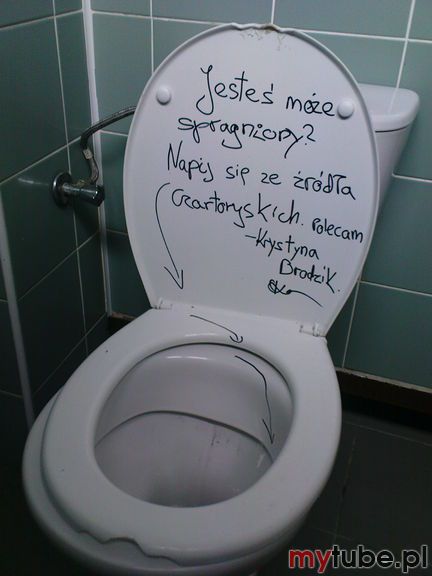 Jesteś może
spragniony?
Napij się ze źródła
Czartoryskich. Polecam
-Krystyna
Brodzik.
mytube.pl